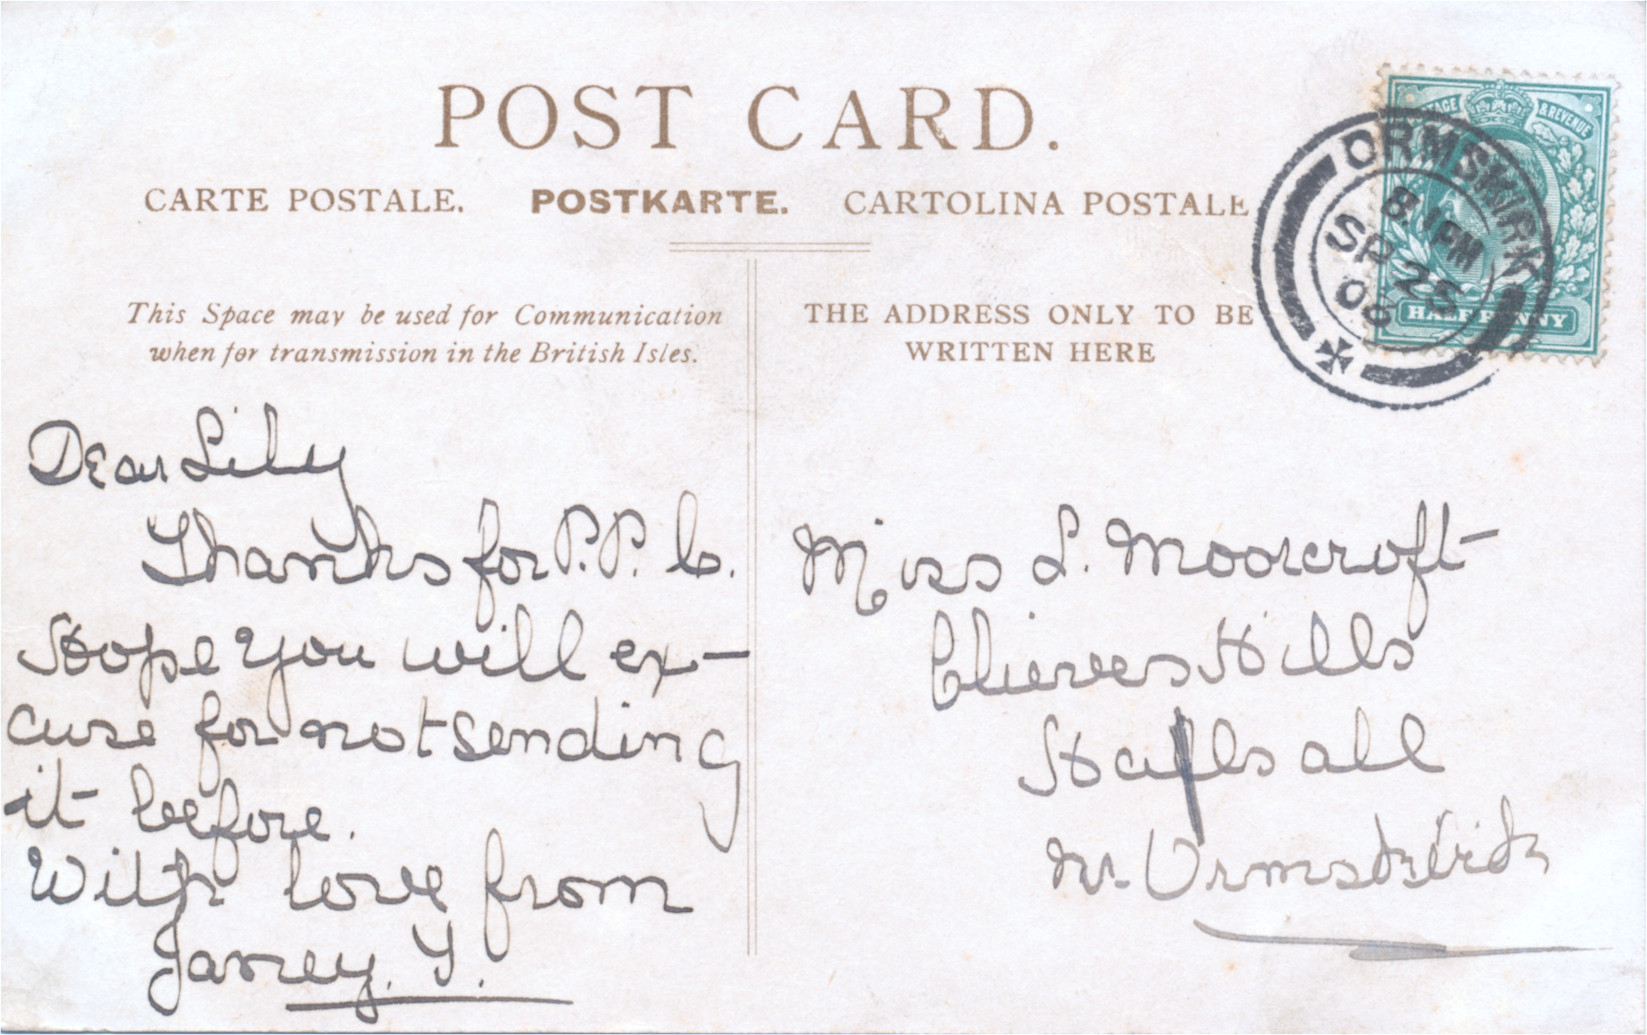 POST CARD.
CARTE POSTALE. POSTKARTE. CARTOLINA POSTALE
This Space may be used for Communication
when for transmission in the British Isles.
THE ADDRESS ONLY TO BE
WRITTEN HERE
POSTAGE & REVENUE
HALFPENNY
ORMSKIRK
8.1PM
SP 25
Dear Lily
Thanks for P.P.C.
Hope you will ex-
cuse for not sending
it before.
With love from
Janey. Y.
Miss L. Moorcroft
Clieves Hills
Halsall
Nr. Ormskirk